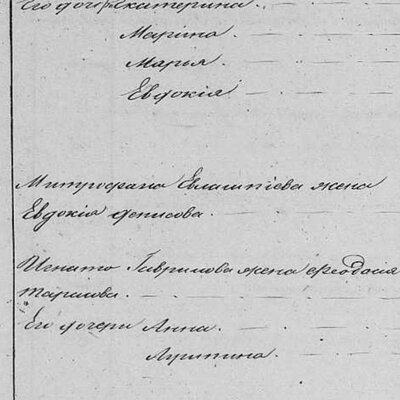 Его дочери Екатерина.
Марина
Марья
Евдокія
Митрофана Евлантіева жена
Евдокія Денисова.
Игната Гаврилова жена Феодосія
Тарасова.
Его дочери Анна.